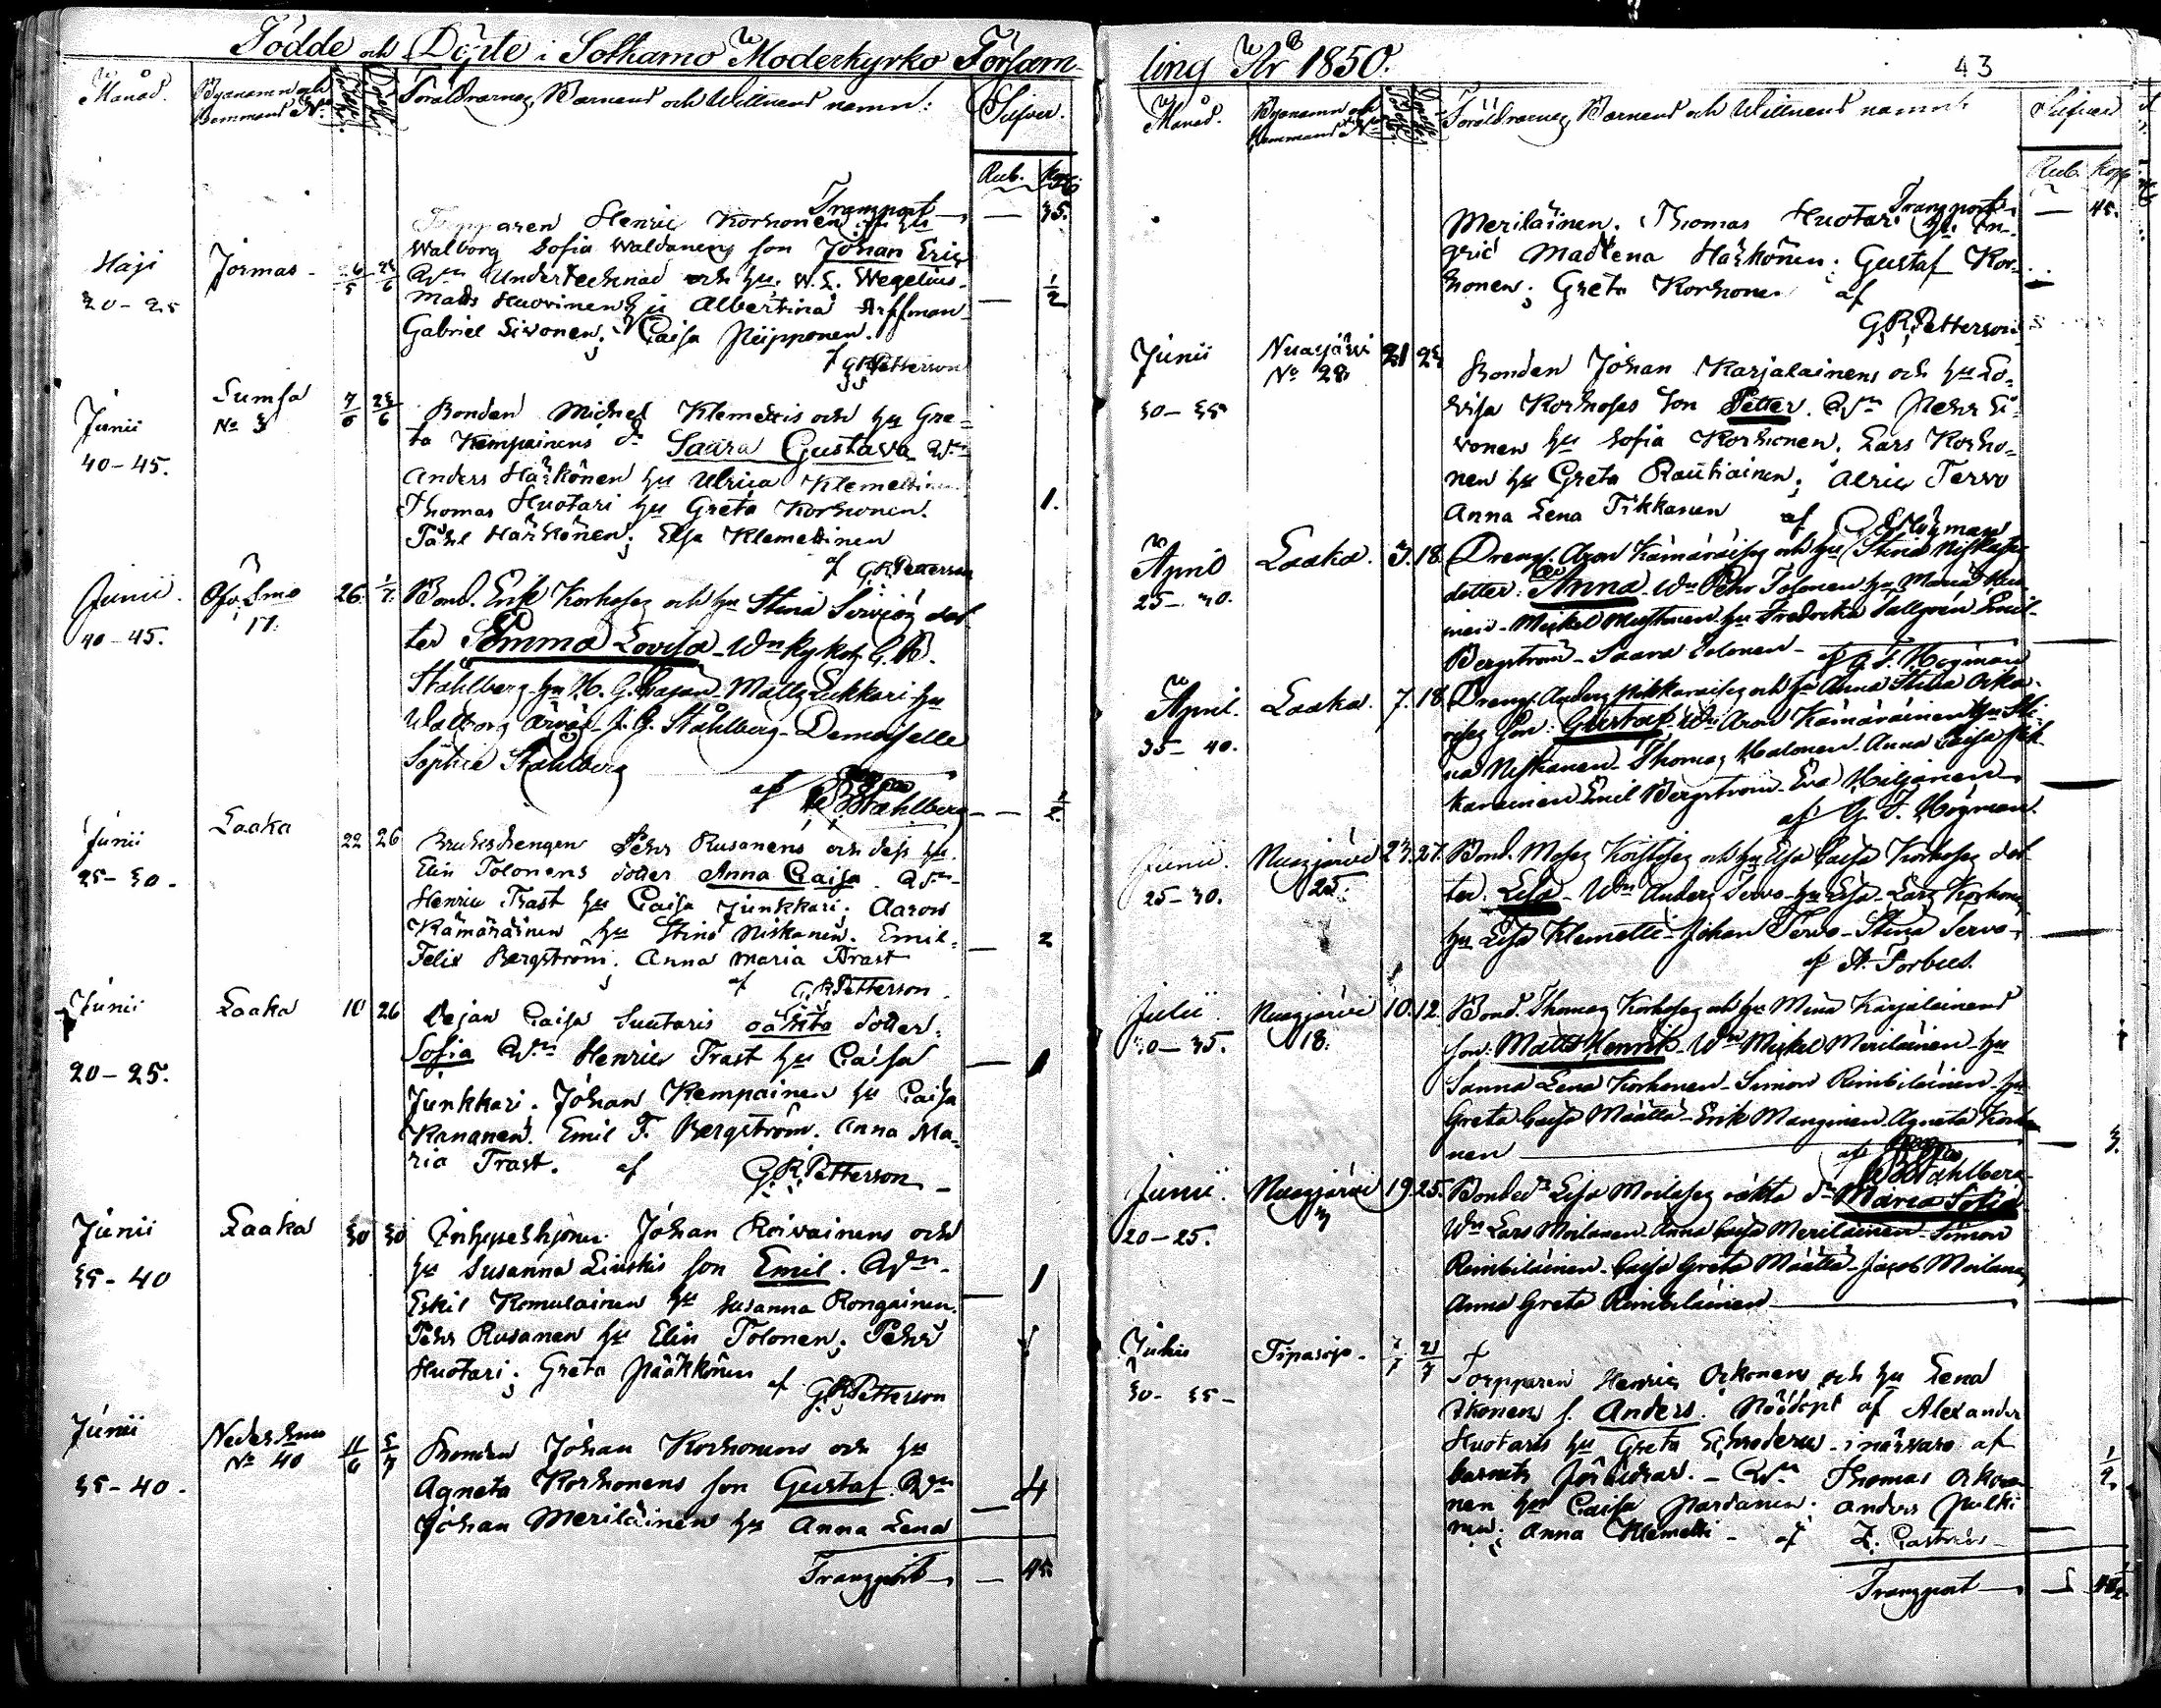 Födde och Döpte i Sotkamo Moderkyrko Församling År 1850.
43
Månad. Byanamn och Hemmans No. Födelse Döpelse Föräldrarnas, Barnens och Wittnens namn: Silfver.
Rub. Kop.
Transport — 35.
Maji
20-25
Jormas
26/5
Torpparen Henric Korhonen hu
Walborg Sofia Waldanens son Johan Eric
Wn Undertecknad och hu. W. L. Wegelius
Matts Huovinen hu Albertina Arffman
Gabriel Sivonen; Caisa Piipponen.
af GRPetterson
1/2
Junii
40-45.
Sumsa
No 3
7/6 23/6
Bonden Michel Klemettis och hu Gre=
ta Kempainens dr Saara Gustava Wn
Anders Härkönen hu Ulrica Klemettinen
Thomas Huotari hu Greta Korhonen.
Påhl Härkönen; Elsa Klemettinen
af GRPetterson
1.
Junii.
40-45.
17.
26. 1/7.
Bond. Erik Korhoses och hu Stina Serviös dot
ter Emma Lovisa - Wn G. W.
Ståhlberg - hu H. G. Cajan - Matts Lukkari - hu
Walborg Ärväs - J. G. Ståhlberg - Demoiselle
Sophie Ståhlberg
af Ståhlberg
1/2
Junii
25-30.
Laaka
22 26
Brukschrengen Pehr Rusanens och dess hu.
Elin Tolonens dotter Anna Caisa Wn
Henric Trast hu Caisa Junkkari; Aaron
Kämäräinen hu Stina Niskanen. Emil
Felix Bergström; Anna Maria Trast
af G.R.Petterson.
2
Junii
20-25.
Laaka
10 26
Pejan Caisa Suutaris oäkta dotter
Sofia Wn Henric Trast hu Caisa
Junkkari. Johan Kempainen hu Caisa
Kananen. Emil F. Bergström. Anna Ma=
ria Trast. af G.R.Petterson
1
Junii
35-40
Laaka
30 30
Inhyseshjonen Johan Koivainens och
hu Susanna Linskis son Emil. Wn
Eskil Romulainen hu Susanna Rongainen.
Pehr Rusanen hu Elin Tolonen; Pehr
Huotari; Greta Pääkkönen
af GRPetterson
1
Junii
35-40.
No 40
11/6 5/7
Bonden Johan Korhonens och hu
Agneta Korhonens son Gustaf Wn
Johan Meriläinen hu Anna Lena
4
Transport — 45.
Månad. Byanamn och Hemmans No Föräldrarnas, Barnens och Wittnens namn. Silfver
Rub. Kop.
Transport — 45.
Meriläinen. Thomas Huotari hu. In=
grid Madlena Härkönen; Gustaf Kor=
honen; Greta Korhonen af
G.R.Petterson
Junii
30-35
Nuasjärvi
No 28
21 23
Bonden Johan Karjalainens och hu Lo=
visa Korhoses son Petter. Wn Pehr Si=
vonen hu Sofia Korhonen. Lars Korho=
nen hu Greta Rautiainen; Alric Tervo
Anna Lena Tikkanen af Högman
April
25-30.
Laaka. 3. 18.
Dreng. Aron Kämäräises och hu Stina Niskases
dotter: Anna. Wn Pehr Tolonen hu Maria
Mickel Mustonen hu Fredrika Sallgrén Emil
Bergström - Saara Tolonen -
af G. F. Högman
April.
35-40.
Laaka. 7. 18.
Dreng. Anders Pikkaraises och hu Anna Stina
son: Gustaf. Wn Aron Kämäräinen hu Sti-
na Niskanen - Thomas Halonen - Anna Caisa Pik
karainen Emil Bergström - Eva Hiljanen
af G. F. Högman.
Junii
25-30.
Nuasjärvi
25.
23. 27.
Bond. Moses Koistises och hu Elsa Caisa Korhoses dot
ter. Lisa - Wn Anders Servo - hu Lisa - Lars Korhonen
hu Lisa Klemetti - Johan Tervo - Stina Servo
af A. Forbus.
Julii
30-35.
Nuasjärvi
18.
10. 12.
Bond. Thomas Korhoses och hu Mina Karjalainens
son: Matts Henrik - Wn Mickel Meriläinen - hu
Sanna Lena Korhonen - Simon Rimbiläinen - hu
Greta Caisa Määttä - Erik Manginen Agneta Korho
nen
af Ståhlberg
3.
Junii.
20-25.
Nuasjärvi
19. 25.
Bondedr Lisa Moilases oäkta dr Maria Sofia
Wn Lars Moilanen - Anna Caisa Meriläinen - Simon
Rimbiläinen - Caisa Greta Määttä - Jacob Moilanen
Anna Greta Rimbiläinen
Julii
30-35-
Tipasoja
7/7 21/7
Torpparen Henric Orkonens och hu Lena
Ikonens s. Anders. Nöddöpt af Alexander
Huotaris hu Greta Schroderus - i närvaro af
barnets föräldrar. - Wn Thomas Orko
nen hu Caisa Partanen; Anders Pulki
nen; Anna Klemetti - af Z. Castrén
1/2
Transport